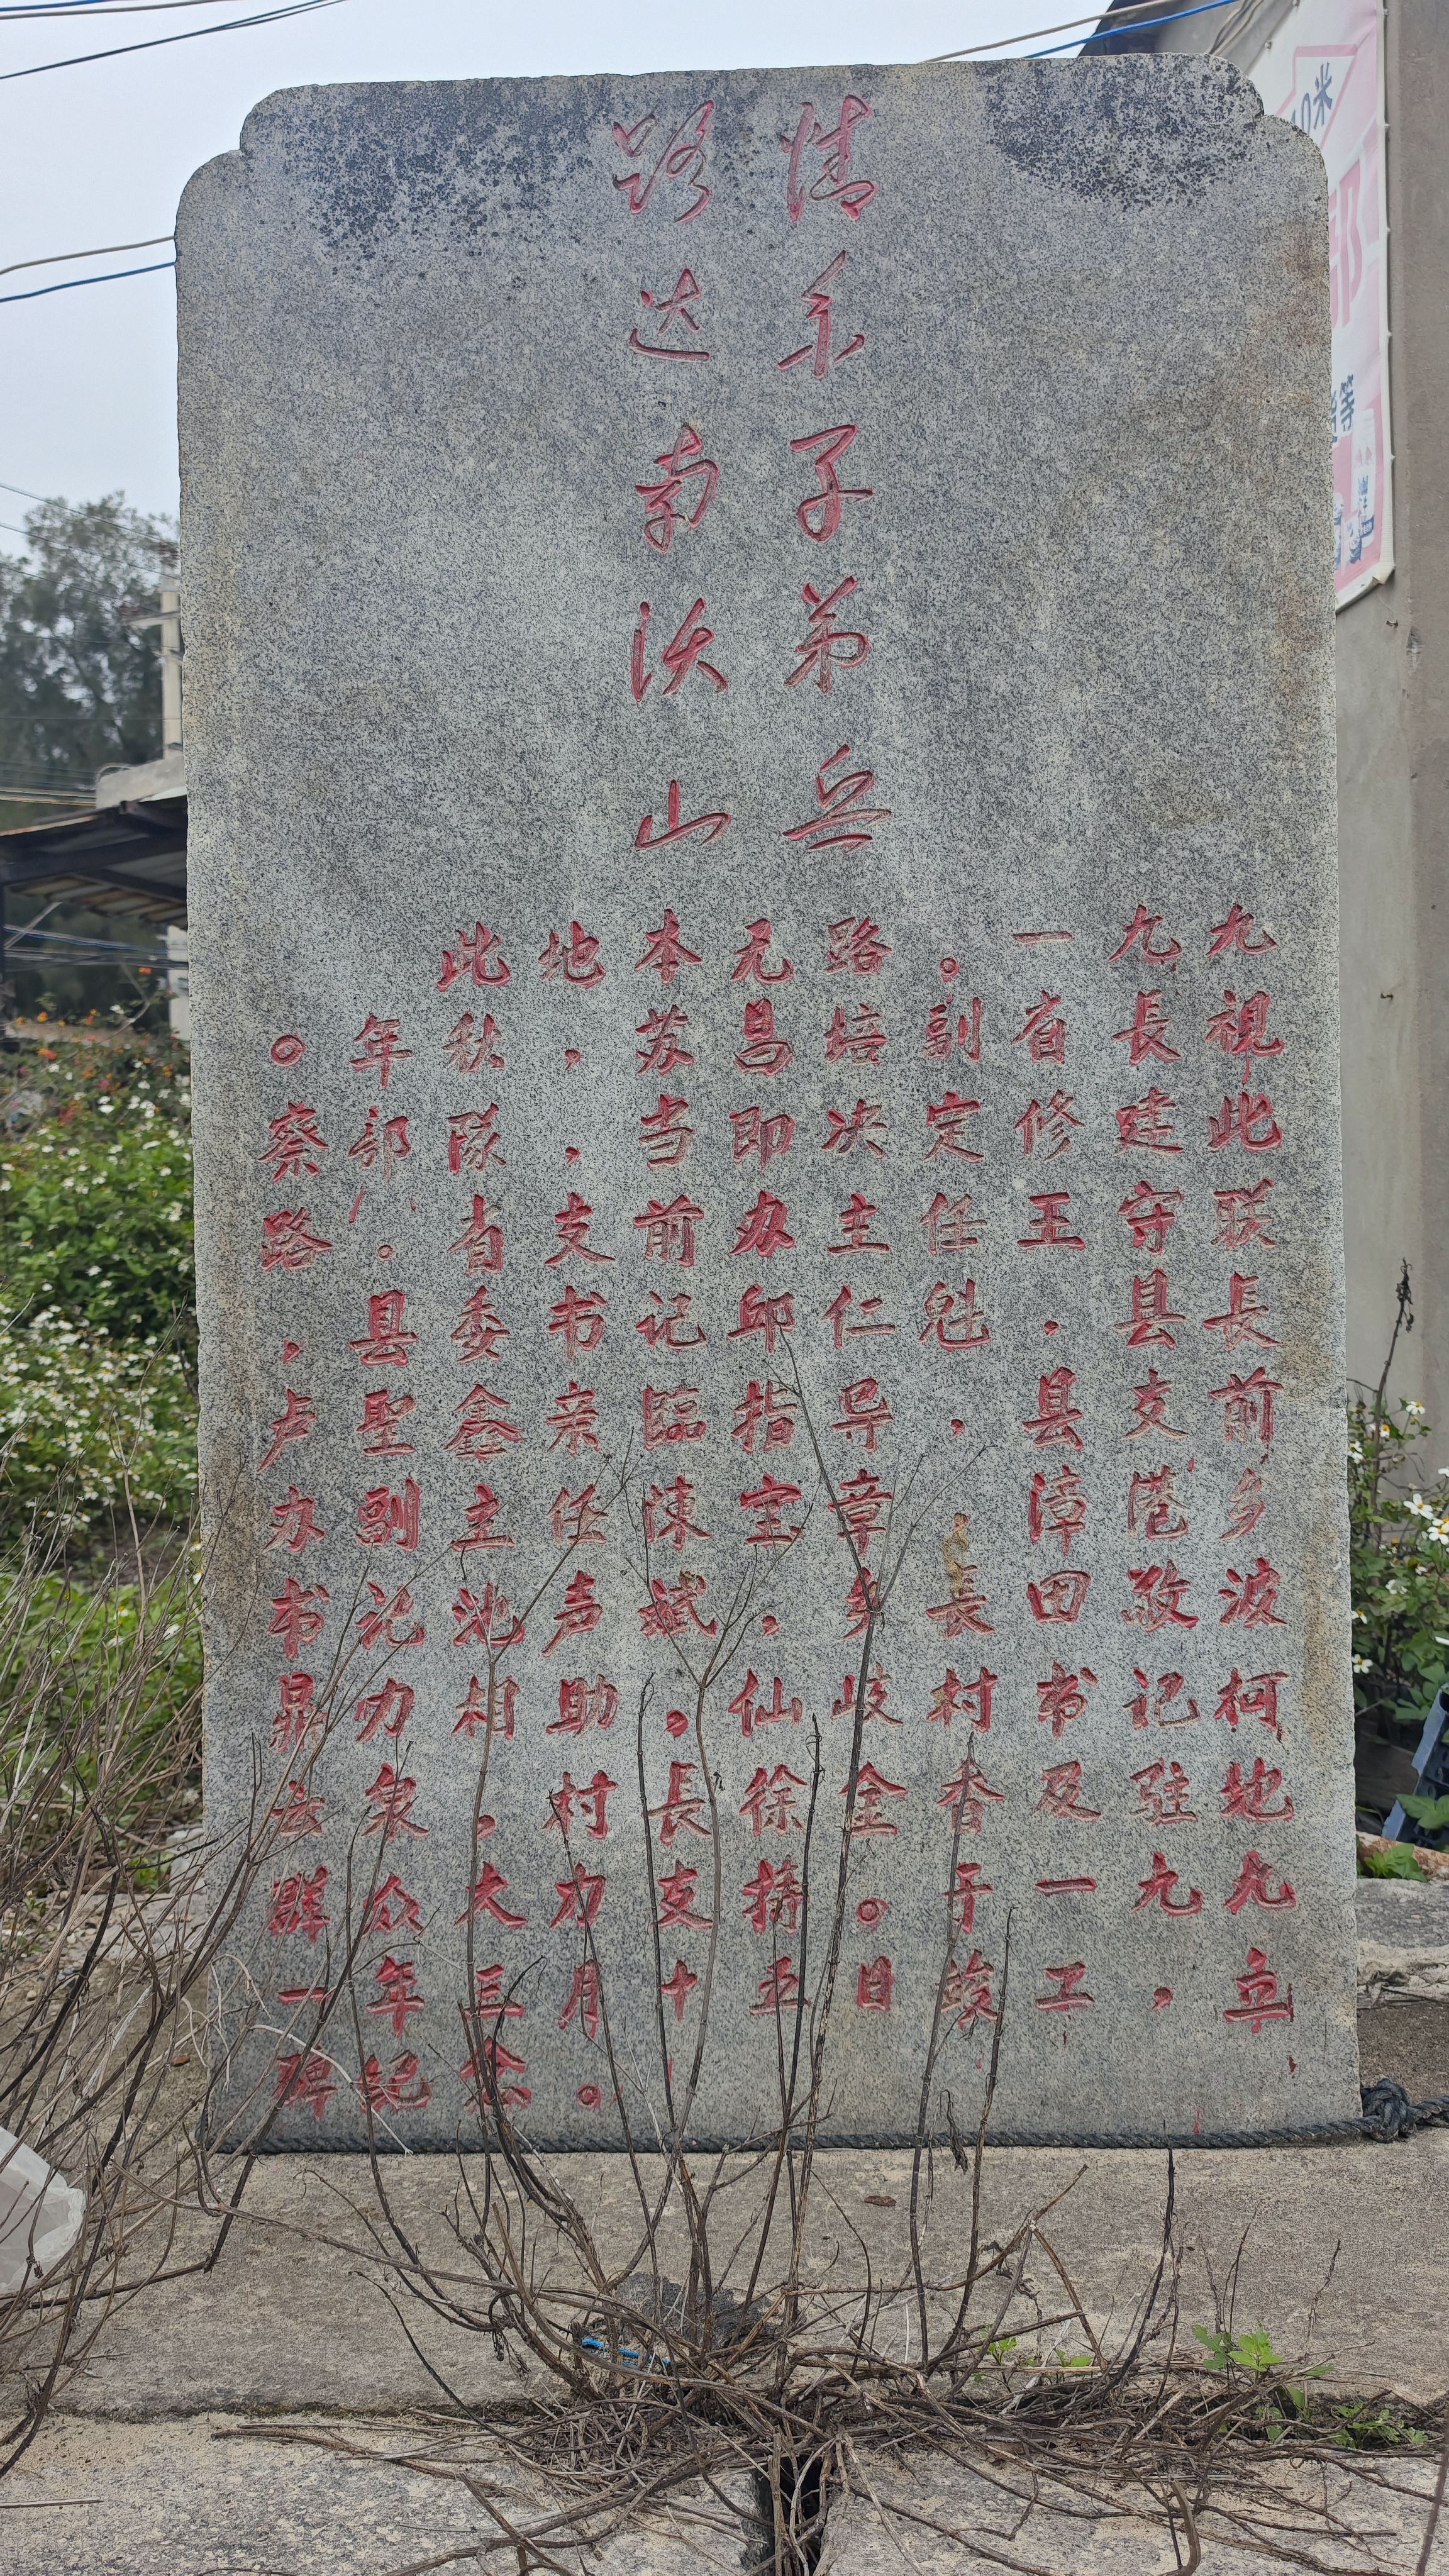 情系子弟兵
路达南沃山
此地本无路。一九九
〇年秋，苏昌培副省長視
察部队．当即决定修建此
路。省支前办主任王守联
．县委书记邱仁魁．县長
卢聖鑫亲臨指导，县支前
办副主任陳宝章．漳港乡
书记池声斌，乡長田敬波
鼎力相助．仙岐村书记柯
泉，村長徐金杏及驻地
群众大力支持。于一九九
一年三月十五日竣工，立
碑纪念。